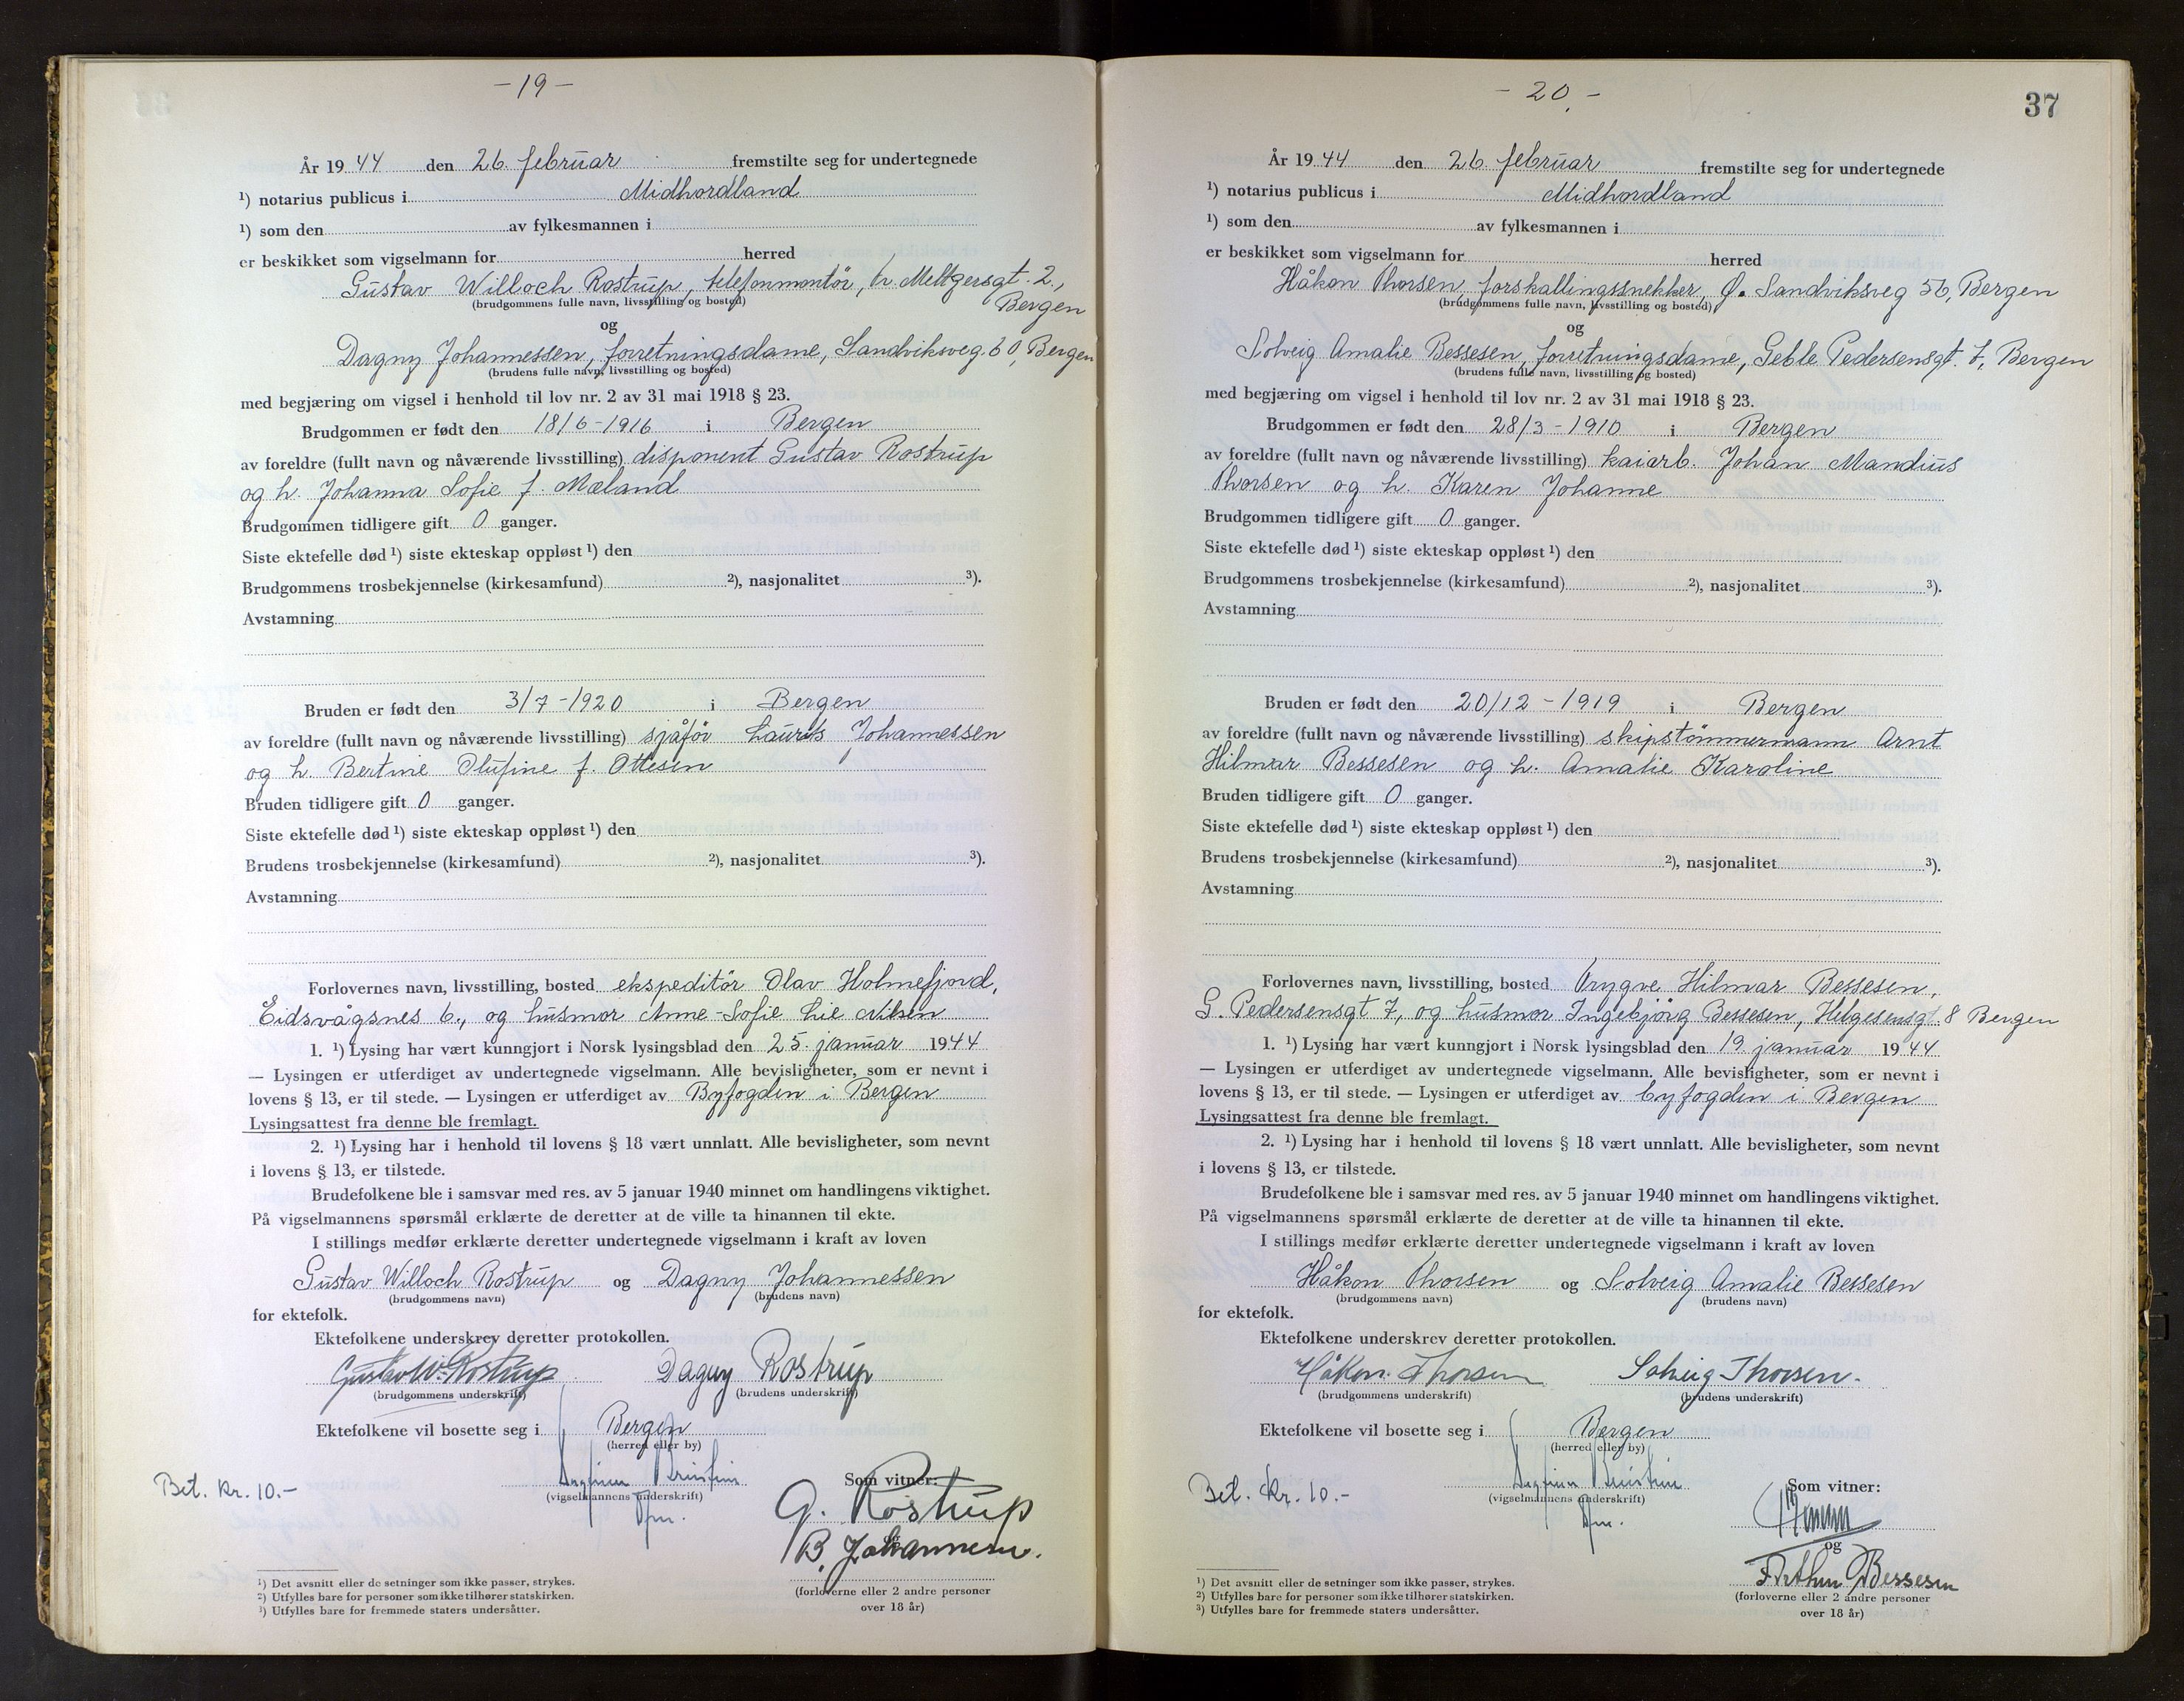 - 19 -
År 1944 den 26. februar fremstilte seg for undertegnede
¹) notarius publicus i Midhordland
¹) som den av fylkesmannen i
er beskikket som vigselmann for herred
Gustav Willoch Rostrup, telefonmontör, h. Meltzersgt. 2,
(brudgommens fulle navn, livsstilling og bosted)
Bergen
og
Dagny Johannessen, forretningsdame, Sandviksveg. 60, Bergen
(brudens fulle navn, livsstilling og bosted)
med begjæring om vigsel i henhold til lov nr. 2 av 31 mai 1918 § 23.
Brudgommen er født den 18/6-1916 i Bergen
av foreldre (fullt navn og nåværende livsstilling) disponent Gustav Rostrup
og h. Johanna Sofie f. Mæland
Brudgommen tidligere gift 0 ganger.
Siste ektefelle død ¹) siste ekteskap oppløst ¹) den
Brudgommens trosbekjennelse (kirkesamfund) ²), nasjonalitet ³).
Avstamning
Bruden er født den 3/7-1920 i Bergen
av foreldre (fullt navn og nåværende livsstilling) sjåför Laurits Johannessen
og h. Bertine Olufine f. Ottesen
Bruden tidligere gift 0 ganger.
Siste ektefelle død ¹) siste ekteskap oppløst ¹) den
Brudens trosbekjennelse (kirkesamfund) ²), nasjonalitet ³).
Avstamning
Forlovernes navn, livsstilling, bosted ekspeditör Olav Holmefjord,
Eidsvågsnes 6., og husmor Anne-Sofie Lie Nilsen
1. ¹) Lysing har vært kunngjort i Norsk lysingsblad den 25. januar 1944
— Lysingen er utferdiget av undertegnede vigselmann. Alle bevisligheter, som er nevnt i
lovens § 13, er til stede. — Lysingen er utferdiget av Byfogden i Bergen
Lysingsattest fra denne ble fremlagt.
2. ¹) Lysing har i henhold til lovens § 18 vært unnlatt. Alle bevisligheter, som nevnt
i lovens § 13, er tilstede.
Brudefolkene ble i samsvar med res. av 5 januar 1940 minnet om handlingens viktighet.
På vigselmannens spørsmål erklærte de deretter at de ville ta hinannen til ekte.
I stillings medfør erklærte deretter undertegnede vigselmann i kraft av loven
Gustav Willoch Rostrup og Dagny Johannessen
(brudgommens navn) (brudens navn)
for ektefolk.
Ektefolkene underskrev deretter protokollen.
Gustav W. Rostrup Dagny Rostrup
(brudgommens underskrift) (brudens underskrift)
Ektefolkene vil bosette seg i Bergen
(herred eller by)
Bet. Kr. 10.-
(vigselmannens underskrift)
Som vitner:
G. Rostrup
og
B. Johannesen.
(forloverne eller 2 andre personer
over 18 år)
¹) Det avsnitt eller de setninger som ikke passer, strykes.
²) Utfylles bare for personer som ikke tilhører statskirken.
³) Utfylles bare for fremmede staters undersåtter.
- 20. -
37
År 1944 den 26. februar fremstilte seg for undertegnede
¹) notarius publicus i Midhordland
¹) som den av fylkesmannen i
er beskikket som vigselmann for herred
Håkon Thorsen, forskallingssnekker, Ø. Sandviksveg 56, Bergen
(brudgommens fulle navn, livsstilling og bosted)
og
Solveig Amalie Bessesen, forretningsdame, Geble Pedersensgt. 7, Bergen
(brudens fulle navn, livsstilling og bosted)
med begjæring om vigsel i henhold til lov nr. 2 av 31 mai 1918 § 23.
Brudgommen er født den 28/3-1910 i Bergen
av foreldre (fullt navn og nåværende livsstilling) kaiarb. Johan Mandius
Thorsen og h. Karen Johanne
Brudgommen tidligere gift 0 ganger.
Siste ektefelle død ¹) siste ekteskap oppløst ¹) den
Brudgommens trosbekjennelse (kirkesamfund) ²), nasjonalitet ³).
Avstamning
Bruden er født den 20/12-1919 i Bergen
av foreldre (fullt navn og nåværende livsstilling) skipstömmermann Arnt
Hilmar Bessesen og h. Amalie Karoline
Bruden tidligere gift 0 ganger.
Siste ektefelle død ¹) siste ekteskap oppløst ¹) den
Brudens trosbekjennelse (kirkesamfund) ²), nasjonalitet ³).
Avstamning
Forlovernes navn, livsstilling, bosted Trygve Hilmar Bessesen,
G. Pedersensgt 7, og husmor Ingebjörg Bessesen, Helgesensgt. 8 Bergen
1. ¹) Lysing har vært kunngjort i Norsk lysingsblad den 19. januar 1944
— Lysingen er utferdiget av undertegnede vigselmann. Alle bevisligheter, som er nevnt i
lovens § 13, er til stede. — Lysingen er utferdiget av byfogden i Bergen
Lysingsattest fra denne ble fremlagt.
2. ¹) Lysing har i henhold til lovens § 18 vært unnlatt. Alle bevisligheter, som nevnt
i lovens § 13, er tilstede.
Brudefolkene ble i samsvar med res. av 5 januar 1940 minnet om handlingens viktighet.
På vigselmannens spørsmål erklærte de deretter at de ville ta hinannen til ekte.
I stillings medfør erklærte deretter undertegnede vigselmann i kraft av loven
Håkon Thorsen og Solveig Amalie Bessesen
(brudgommens navn) (brudens navn)
for ektefolk.
Ektefolkene underskrev deretter protokollen.
Håkon Thorsen Solveig Thorsen.
(brudgommens underskrift) (brudens underskrift)
Ektefolkene vil bosette seg i Bergen
(herred eller by)
Bet. Kr. 10.-
(vigselmannens underskrift)
Som vitner:
og
Arthur Bessesen
(forloverne eller 2 andre personer
over 18 år)
¹) Det avsnitt eller de setninger som ikke passer, strykes.
²) Utfylles bare for personer som ikke tilhører statskirken.
³) Utfylles bare for fremmede staters undersåtter.